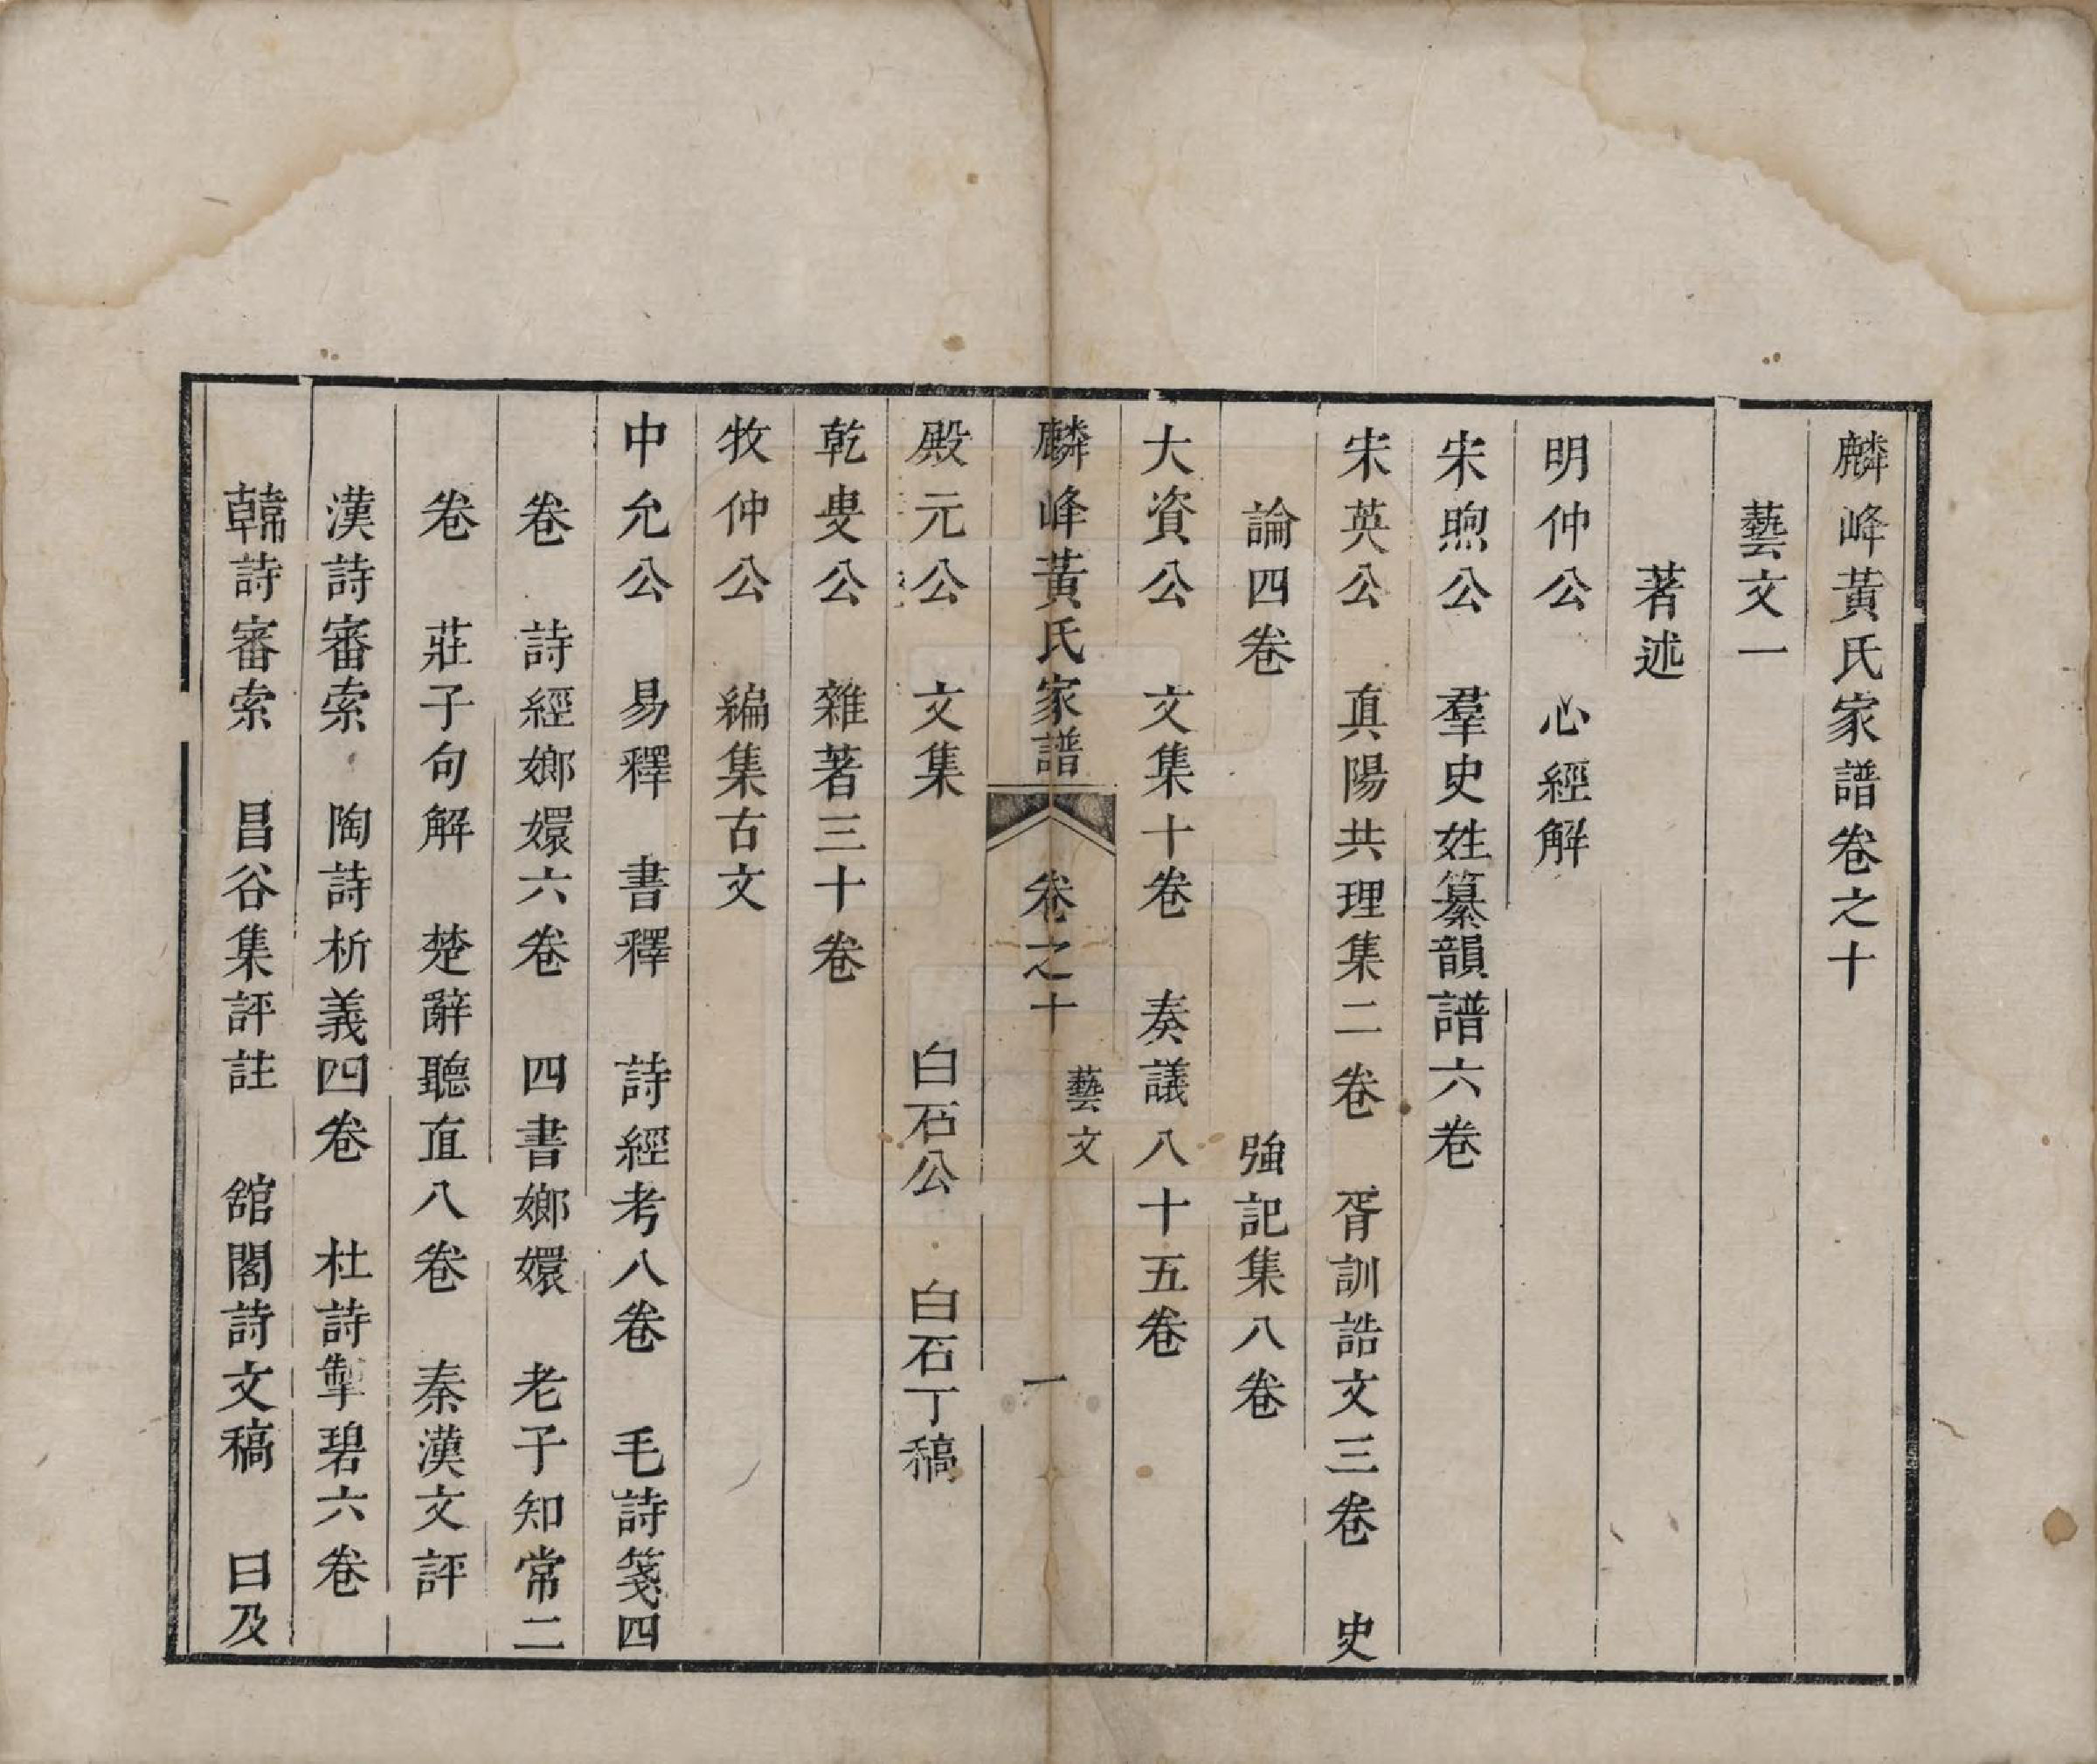 麟峰黃氏家譜卷之十
藝文一
著述
明仲公　心經解
宋煦公　羣史姓纂韻譜六卷
宋英公　眞陽共理集二卷　胥訓誥文三卷　史
論四卷　強記集八卷
大資公　文集十卷　奏議八十五卷
麟峰黃氏家譜　卷之十　藝文　一
殿元公　文集　白石公　白石丁稿
乾叟公　雜著三十卷
牧仲公　編集古文
中允公　易釋　書釋　詩經考八卷　毛詩箋四
卷　詩經嫏嬛六卷　四書嫏嬛　老子知常二
卷　莊子句解　楚辭聽直八卷　秦漢文評
漢詩審索　陶詩析義四卷　杜詩掣碧六卷
韓詩審索　昌谷集評註　舘閣詩文稿　日及